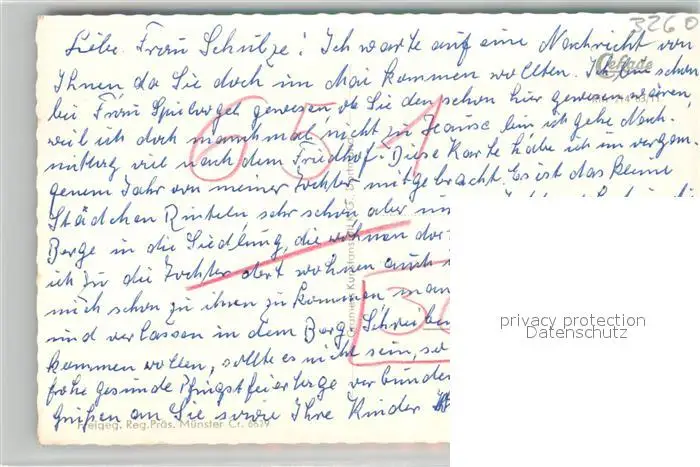 3260
Liebe Frau Schulze! Ich warte auf eine Nachricht von
Ihnen da Sie doch im Mai kommen wollten. Ich bin schon
bei Frau Spielvogel gewesen ob Sie den schon hier gewesen wären
weil ich doch manchmal nicht zu Hause bin ich gehe Nach-
mittag viel nach dem Friedhof. Diese Karte habe ich im vergan-
genem Jahr von meiner Tochter mitgebracht. Es ist das kleine
Städchen Rinteln, sehr schön aber
Berge in die Siedlung, die wohnen dor
ich zu die Tochter dort wohnen auch
mich schon zu ihnen zu kommen, man
und verlassen in dem Berg. Schreiben
kommen wollen, sollte es nicht sein, so
frohe gesunde Pfingstfeiertage verbunden
Grüßen an Sie sowie Ihre Kinder
Freigeg. Reg.Präs. Münster Cr. 6629
Cekade
651
privacy protection
Datenschutz